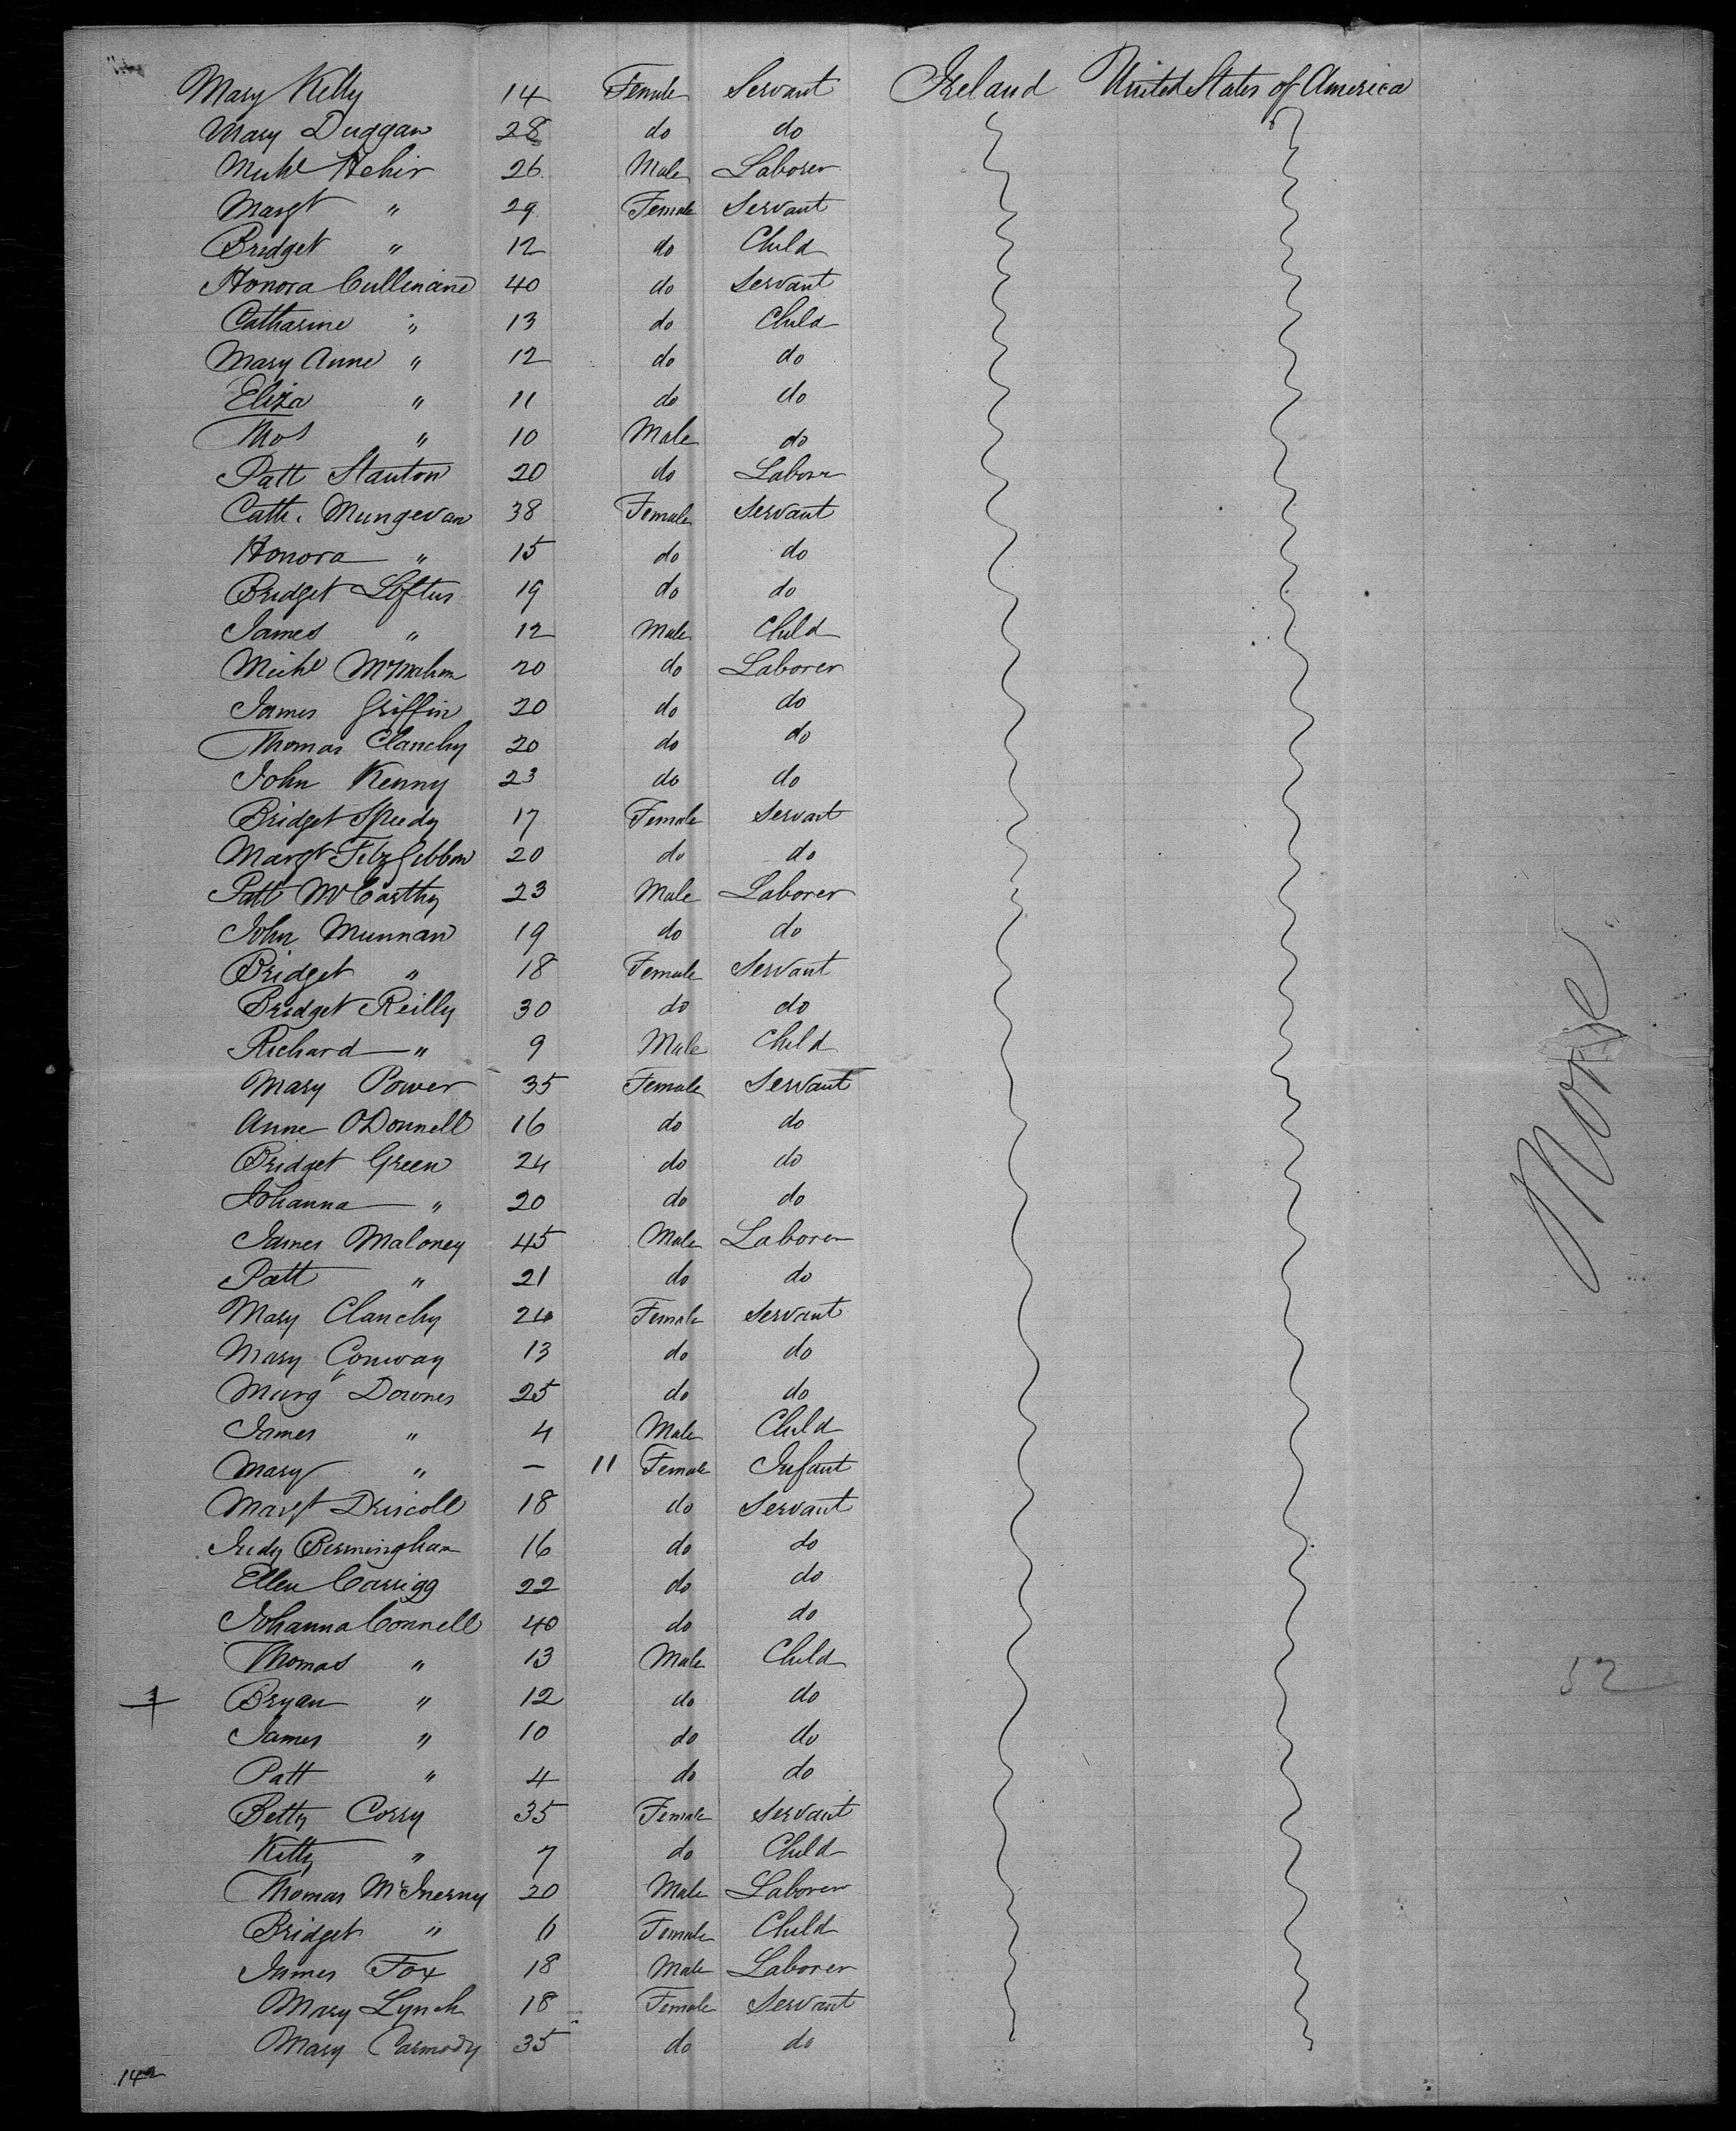 Mary Kelly 14 Female Servant Ireland United States of America
Mary Duggan 28 do do
Michl Hehir 26 Male Laborer
Margt " 29 Female Servant
Bridget " 12 do Child
Honora Cullinane 40 do Servant
Catharine " 13 do Child
Mary Anne " 12 do do
Eliza " 11 do do
Thos " 10 Male do
Patt Stanton 20 do Laborr
Cath. Mungevan 38 Female Servant
Honora " 15 do do
Bridget Loftus 19 do do
James " 12 Male Child
Michl McMahon 20 do Laborer
James Griffin 20 do do
Thomas Clanchy 20 do do
John Kenny 23 do do
Bridget Speedy 17 Female Servant
Margt FitzGibbon 20 do do
Patt McCarthy 23 Male Laborer
John Munnan 19 do do
Bridget " 18 Female Servant
Bridget Reilly 30 do do
Richard " 9 Male Child
Mary Power 35 Female Servant
Anne ODonnell 16 do do
Bridget Green 24 do do
Johanna " 20 do do
James Maloney 45 Male Laborer
Patt " 21 do do
Mary Clanchy 24 Female Servant
Mary Conway 13 do do
Margt Downes 25 do do
James " 4 Male Child
Mary " — 11 Female Infant
Margt Driscoll 18 do Servant
Judy Birmingham 16 do do
Ellen Carrigg 22 do do
Johanna Connell 40 do do
Thomas " 13 Male Child
Bryan " 12 do do
James " 10 do do
Patt " 4 do do
Betty Corry 35 Female Servant
Kitty " 7 do Child
Thomas McInerny 20 Male Laborer
Bridget " 6 Female Child
James Fox 18 Male Laborer
Mary Lynch 18 Female Servant
Mary Carmody 35 do do
More
52